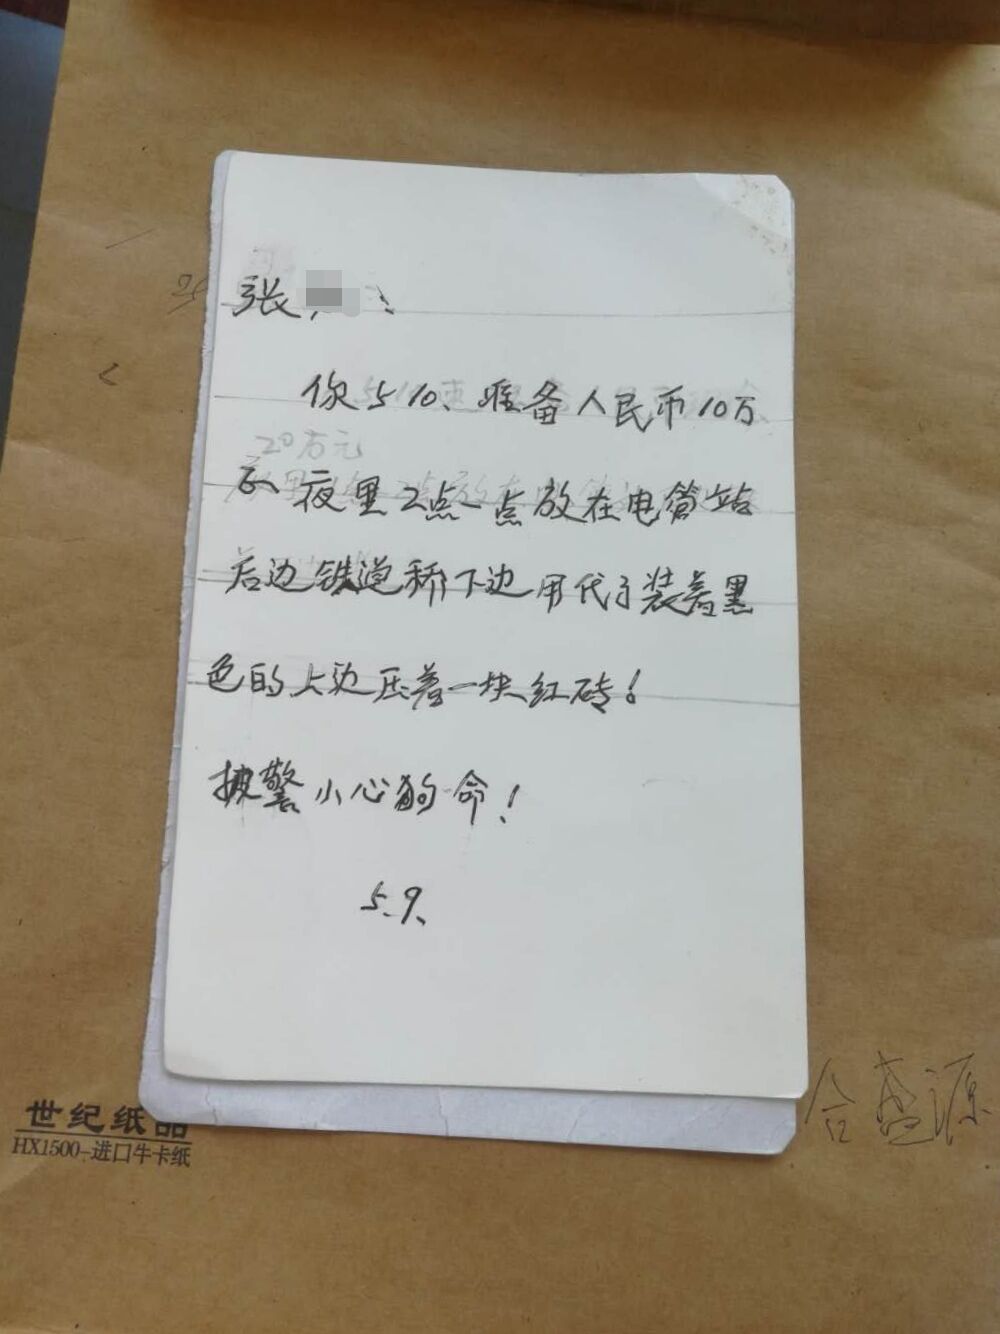 张
你5.10、准备人民币10万
20万元
夜里2点-点放在电管站
后边铁道桥下边用代子装着黑
色的上边压着一块红砖！
披警小心狗命！
5.9、
世纪纸品
HX1500-进口牛卡纸
合盛源